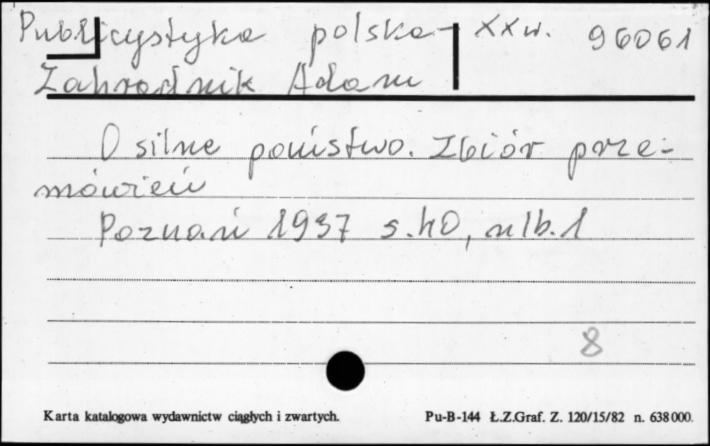 Publicystyka polska - XX w. 96061
Zahradnik Adam
O silne państwo. Zbiór prze-
mówień
Poznań 1937 s. 40, nlb. 1
8
Karta katalogowa wydawnictw ciągłych i zwartych. Pu-B-144 Ł.Z.Graf. Z. 120/15/82 n. 638000.